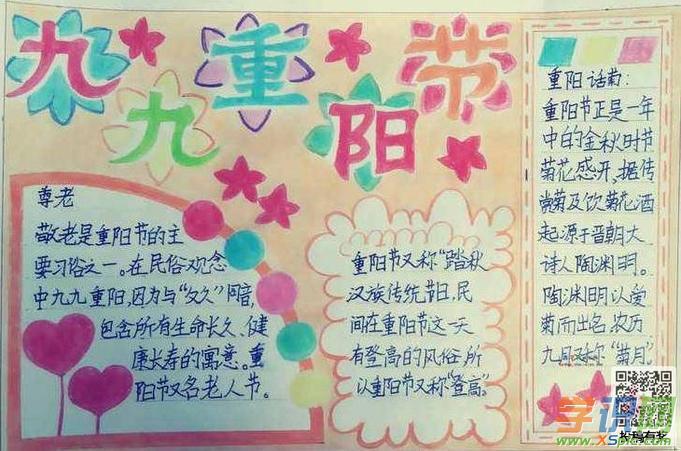 九九重阳节
尊老
敬老是重阳节的主
要习俗之一。在民俗观念
中九九重阳，因为与“久久”同音，
包含所有生命长久、健
康长寿的寓意。重
阳节又名老人节。
重阳节又称“踏秋
汉族传统节日，民
间在重阳节这一天
有登高的风俗，所
以重阳节又称“登高”。
重阳话菊：
重阳节正是一年
中的金秋时节
菊花盛开，据传
赏菊及饮菊花酒
起源于晋朝大
诗人陶渊明。
陶渊明以爱
菊而出名，农历
九月又称“菊月”。
学识网
www.xs
扫码有奖